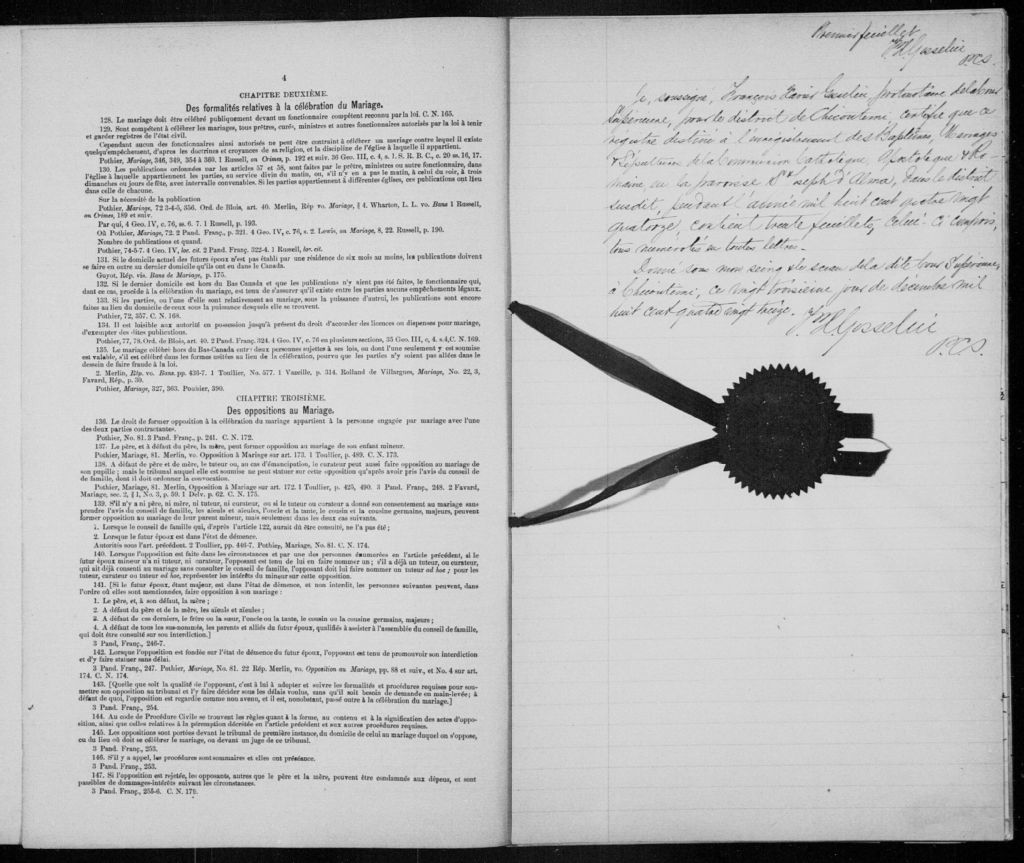 4
CHAPITRE DEUXIÈME.
Des formalités relatives à la célébration du Mariage.
128. Le mariage doit être célébré publiquement devant un fonctionnaire compétent reconnu par la loi. C. N. 165.
129. Sont compétent à célébrer les mariages, tous prêtres, curés, ministres et autres fonctionnaires autorisés par la loi à tenir
et garder registres de l'état civil.
Cependant aucun des fonctionnaires ainsi autorisés ne peut être contraint à célébrer un mariage contre lequel il existe
quelqu'empêchement, d'après les doctrines et croyances de sa religion, et la discipline de l'église à laquelle il appartient.
Pothier, Mariage, 346, 349, 354 à 360. 1 Russell, on Crimes, p. 192 et suiv. 36 Geo. III, c. 4, s. 1. S. R. B. C., c. 20 ss. 16, 17.
130. Les publications ordonnées par les articles 57 et 58, sont faites par le prêtre, ministres ou autre fonctionnaire, dans
l'église à laquelle appartiennent les parties, au service divin du matin, ou, s'il n'y en a pas le matin, à celui du soir, à trois
dimanches ou jours de fête, avec intervalle convenables. Si les parties appartiennent à différentes églises, ces publications ont lieu
dans celle de chacune.
Sur la nécessité de la publication
Pothier, Mariage, 72 3-4-5, 356. Ord. de Blois, art. 40. Merlin, Rép vo. Mariage, § 4. Wharton, L. L. vo. Bans 1 Russell,
on Crimes, 189 et suiv.
Par qui, 4 Geo. IV, c. 76, ss. 6. 7. 1 Russell, p. 193.
Où Pothier, Mariage, 72. 2 Pand. Franç., p. 321. 4 Geo. IV, c. 76, s. 2. Lewis, on Mariage, 8, 22. Russell, p. 190.
Nombre de publications et quand.
Pothier, 74-5-7. 4 Geo. IV, loc. cit. 2 Pand. Franç. 322-4. 1 Russell, loc. cit.
131. Si le domicile actuel des futurs époux n'est pas établi par une résidence de six mois au moins, les publications doivent
se faire en outre au dernier domicile qu'ils ont eu dans le Canada.
Guyot, Rép. vis. Bans de Mariage, p. 175.
132. Si le dernier domicile est hors du Bas Canada et que les publications n'y aient pas été faites, le fonctionnaire qui,
dant ce cas, procède à la célébration du mariage, est tenu de s'assurer qu'il existe entre les parties aucuns empêchements légaux.
133. Si les parties, ou l'une d'elle sont relativement au mariage, sous la puissance d'autrui, les publications sont encore
faites au lieu du domicile de ceux sous la puissance desquels elle se trouvent.
Pothier, 72, 357. C. N. 168.
134. Il est loisible aux autorité en possession jusqu'à présent du droit d'accorder des licences ou dispenses pour mariage,
d'exempter des dites publications.
Pothier, 77, 78, Ord. de Blois, art. 40. 2 Pand. Franç. 324. 4 Geo. IV, c. 76 en plusieurs sections, 35 Geo. III, c, 4. s.4,C. N. 169.
135. Le mariage célébré hors du Bas-Canada entre deux personnes sujettes à ses lois, ou dont l'une seulement y est soumise
est valable, s'il est célébré dans les formes usitées au lieu de la célébration, pourvu que les parties n'y soient pas allées dans le
dessein de faire fraude à la loi.
2. Merlin, Rép. vo. Bans. pp. 436-7. 1 Toullier, No. 577. 1 Vazeille, p. 314. Rolland de Villargues, Mariage, No. 22, 3,
Favard, Rép., p. 30.
Pothier, Mariage, 327, 363. Pouhier, 390.
CHAPITRE TROISIÈME.
Des oppositions au Mariage.
136. Le droit de former opposition à la célébration du mariage appartient à la personne engagée par mariage avec l'une
des deux parties contractantes.
Pothier, No. 81. 3 Pand. Franç., p. 241. C. N. 172.
137. Le père, et à défaut du père, la mère, peut former opposition au mariage de son enfant mineur.
Pothier, Mariage, 81. Merlin, vo. Opposition à Mariage sur art. 173. 1 Toullier, p. 489. C. N. 173.
138. A défaut de père et de mère, le tuteur ou, au cas d'émancipation, le curateur peut aussi faire opposition au mariage de
son pupille ; mais le tribunal auquel elle est soumise ne peut statuer sur cette opposition qu'après avoir pris l'avis du conseil de
de famille, dont il doit ordonner la convocation.
Pothier, Mariage, 81. Merlin, Opposition à Mariage sur art. 172. 1 Toullier, p. 425, 490. 3 Pand. Franç., 248. 2 Favard,
Mariage, sec. 2, § 1, No. 3, p. 59. 1 Delv. p. 62. C. N. 175.
139. S'il n'y a ni père, ni mère, ni tuteur, ni curateur, ou si le tuteur ou curateur a donné son consentement au mariage sans
prendre l'avis du conseil de famille, les aïeuls et aïeules, l'oncle et la tante, le cousin et la cousine germaines, majeurs, peuvent
former opposition au mariage de leur parent mineur, mais seulement dans les deux cas suivants.
1. Lorsque le conseil de famille qui, d'après l'article 122, aurait dû être consulté, ne l'a pas été ;
2. Lorsque le futur époux est dans l'état de démence.
Autorités sous l'art. précédent. 2 Toullier, pp. 446-7. Pothier, Mariage, No. 81. C. N. 174.
140. Lorsque l'opposition est faite dans les circonstances et par une des personnes énumérées en l'article précédent, si le
futur époux mineur n'a ni tuteur, ni curateur, l'opposant est tenu de lui en faire nommer un ; s'il a déjà un tuteur, ou curateur,
qui ait déjà consenti au mariage sans consulter le conseil de famille, l'opposant doit lui faire nommer un tuteur ad hoc ; pour les
tuteur, curateur ou tuteur ad hoc, représenter les intérêts du mineur sur cette opposition.
141. [Si le futur époux, étant majeur, est dans l'état de démence, et non interdit, les personnes suivantes peuvent, dans
l'ordre où elles sont mentionnées, faire opposition à son mariage :
1. Le père, et, à son défaut, la mère ;
2. A défaut du père et de la mère, les aïeuls et aïeules ;
3. A défaut de ces derniers, le frère ou la sœur, l'oncle ou la tante, le cousin ou la cousine germaine, majeurs ;
4. A défaut de tous les sus-nommés, les parents et alliés du futur époux, qualifiés à assister à l'assemblée du conseil de famille,
qui doit être consulté sur son interdiction.]
3 Pand, Franç., 246-7.
142. Lorsque l'opposition est fondée sur l'état de démence du futur époux, l'opposant est tenu de promouvoir son interdiction
et d'y faire statuer sans délai.
3 Pand. Franç., 247. Pothier, Mariage, No. 81. 22 Rép. Merlin, vo. Opposition au Mariage, pp. 88 et suiv., et No. 4 sur art.
174. C. N. 174.
143. [Quelque que soit la qualité de l'opposant, c'est à lui à adopter et suivre les formalités et procédures requises pour sou-
mettre son opposition au tribunal et l'y faire décider sous les délais voulus, sans qu'il soit besoin de demande en main-levée ; à
défaut de quoi, l'opposition est regardée comme non avenu, et il est, nonobstant, passé outre à la célébration du mariage.]
3 Pand. Franç., 254.
144. Au code de Procédure Civile se trouvent les règles quant à la forme, au contenu et à la signification des actes d'oppo-
sition, ainsi que celles relatives à la péremption décrétée en l'article précédent et aux autres procédures requises.
145. Les oppositions sont portées devant le tribunal de première instance, du domicile de celui au mariage duquel on s'oppose,
ou du lieu où doit se célébrer le mariage, ou devant un juge de ce tribunal.
3 Pand. Franç., 253.
146. S'il y a appel, les procédures sont sommaires et elles ont préséance.
3 Pand. Franç., 253.
147. Si l'opposition est rejetée, les opposants, autres que le père et la mère, peuvent être condamnés aux dépens, et sont
passibles de dommages-intérêts suivant les circonstances.
3 Pand. Franç., 255-6. C. N. 179.
Premier feuillet
Gosselin
P.C.S.
Je, soussigné, François Xavier Gosselin, protonotaire de la Cour
Supérieure, pour le district de Chicoutimi, certifie que ce
registre destiné à l'enregistrement des Baptêmes, Mariages
& Sépultures de la Communion Catholique, Apostolique & Ro-
maine en la paroisse St Joseph d'Alma, dans le district
susdit, pendant l'année mil huit cent quatre vingt
quatorze, contient trente feuillets, celui-ci compris,
tous numérotés en toutes lettres.
Donné sous mon seing & le sceau de la dite Cour Supérieure,
à Chicoutimi, ce vingt troisième jour de décembre mil
huit cent quatre vingt treize.
Gosselin
P.C.S.